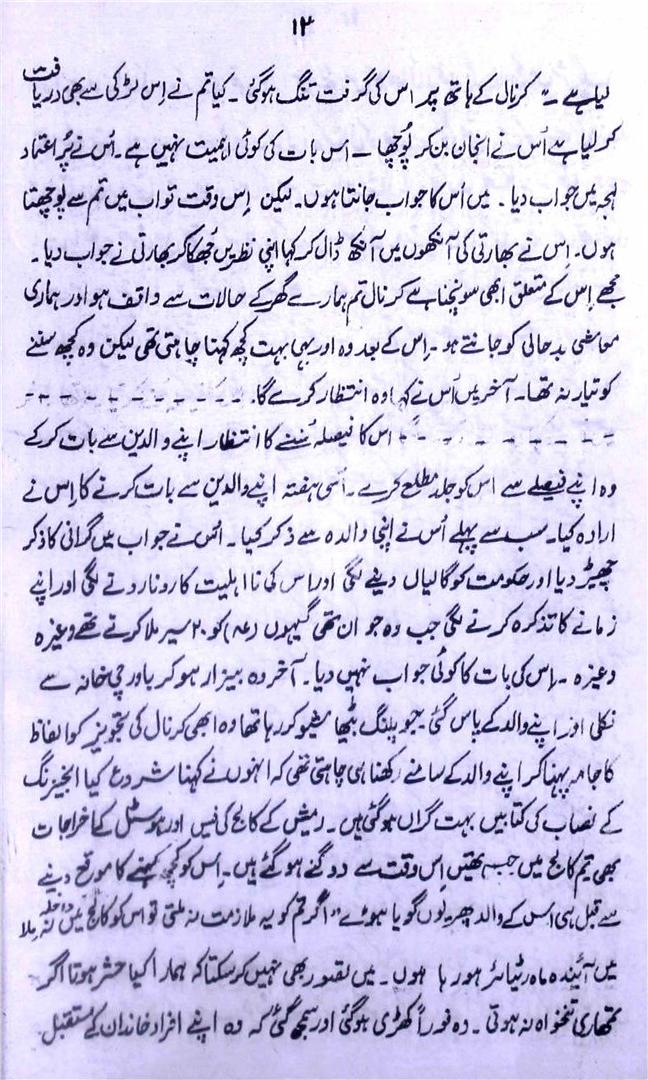 ۱۳
لیا ہے ۔" کرنال کے ہاتھ پر اس کی گرفت تنگ ہوگئی ۔ کیا تم نے اِس لڑکی سے بھی دریافت
کر لیا ہے اُس نے انجان بن کر پوچھا ۔ اس بات کی کوئی اہمیت نہیں ہے ۔ اُس نے پُر اعتماد
لہجہ میں جواب دیا ۔ میں اُس کا جواب جانتا ہوں ۔ لیکن اِس وقت تو اب میں تم سے پوچھتا
ہوں ۔ اِس نے بھارتی کی آنکھوں میں آنکھ ڈال کر کہا اپنی نظریں جُھکا کر بھارتی نے جواب دیا ۔
مجھے اِس کے متعلق ابھی سونچنا ہے کرنال تم ہمارے گھر کے حالات سے واقف ہو اور ہماری
معاشی بد حالی کو جانتے ہو ۔ اِس کے بعد وہ اور بھی بہت کچھ کہنا چاہتی تھی لیکن وہ کچھ سننے
کو تیار نہ تھا ۔ آخر میں اُس نے کہا وہ انتظار کرے گا ۔ - - - - - - - - - -
- - - - - - - - - اس کا فیصلہ سُننے کا انتظار اپنے والدین سے بات کرکے
وہ اپنے فیصلے سے اس کو جلد مطلع کرے ۔ اُسی ہفتہ اپنے والدین سے بات کرنے کا اِس نے
ارادہ کیا ۔ سب سے پہلے اُس نے اپنی والدہ سے ذکر کیا ۔ اُس نے جواب میں گرانی کا ذکر
چھیڑ دیا اور حکومت کو گالیاں دینے لگی اور اس کی نااہلیت کا رونا رونے لگی اور اپنے
زمانے کا تذکرہ کرنے لگی جب وہ جوان تھی گیہوں (عہ) کو ۲۰ سیر ملا کرتے تھے وغیرہ
وغیرہ ۔ اِس کی بات کا کوئی جواب نہیں دیا ۔ آخر وہ بیزار ہو کر باورچی خانہ سے
نکلی اور اپنے والد کے پاس گئی جو پلنگ بیٹھا شیو کر رہا تھا وہ ابھی کرنال کی تجویز کو الفاظ
کا جامہ پہنا کر اپنے والد کے سامنے رکھنا ہی چاہتی تھی کہ انہوں نے کہنا شروع کیا انجیئرنگ
کے نصاب کی کتابیں بہت گراں ہو گئی ہیں ۔ رمیش کے کالج کی فیس اور ہوسٹل کے اخراجات
بھی تم کالج میں جب تھیں اِس وقت سے دوگنے ہو گئے ہیں ۔ اِس کو کچھ کہنے کا موقع دینے
سے قبل ہی اس کے والد پھر یوں گویا ہوئے " اگر تم کو یہ ملازمت نہ ملتی تو اس کو کالج میں داخلہ نہ ملا
میں آئیندہ ماہ ریٹائر ہو رہا ہوں ۔ میں تصور بھی نہیں کر سکتا کہ ہمارا کیا حشر ہوتا اگر
تمھاری تنخواہ نہ ہوتی ۔ وہ فوراً کھڑی ہو گئی اور سمجھ گئی کہ وہ اپنے افراد خاندان کے مستقبل